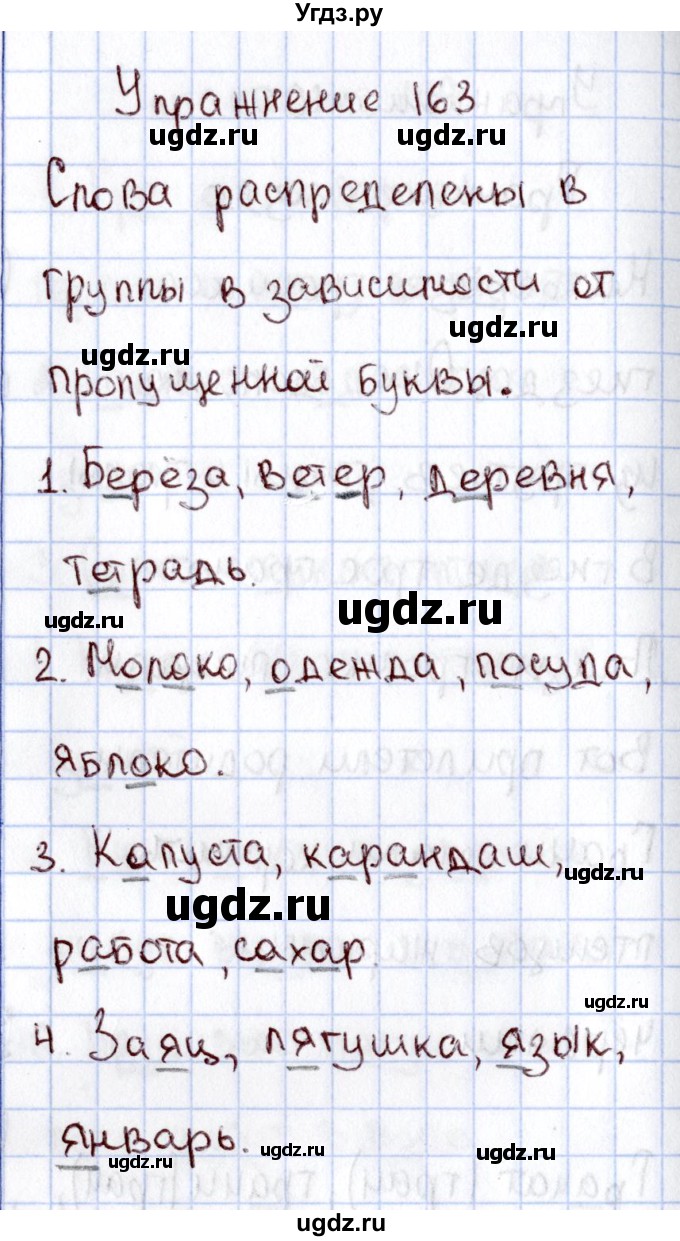 Угдз.ру
Упражнение 163
ugdz.ru ugdz.ru
Слова распределены в
группы в зависимости от
ugdz.ru
ugdz.ru
пропущенной буквы.
1. Берёза, ветер, деревня,
тетрадь.
ugdz.ru ugdz.ru
2. Молоко, одежда, посуда,
яблоко.
3. Капуста, карандаш,
ugdz.ru
ugdz.ru
работа, сахар.
ugdz.ru
4. Заяц, лягушка, язык,
январь.
ugdz.ru ugdz.ru ugdz.ru
ugdz.ru